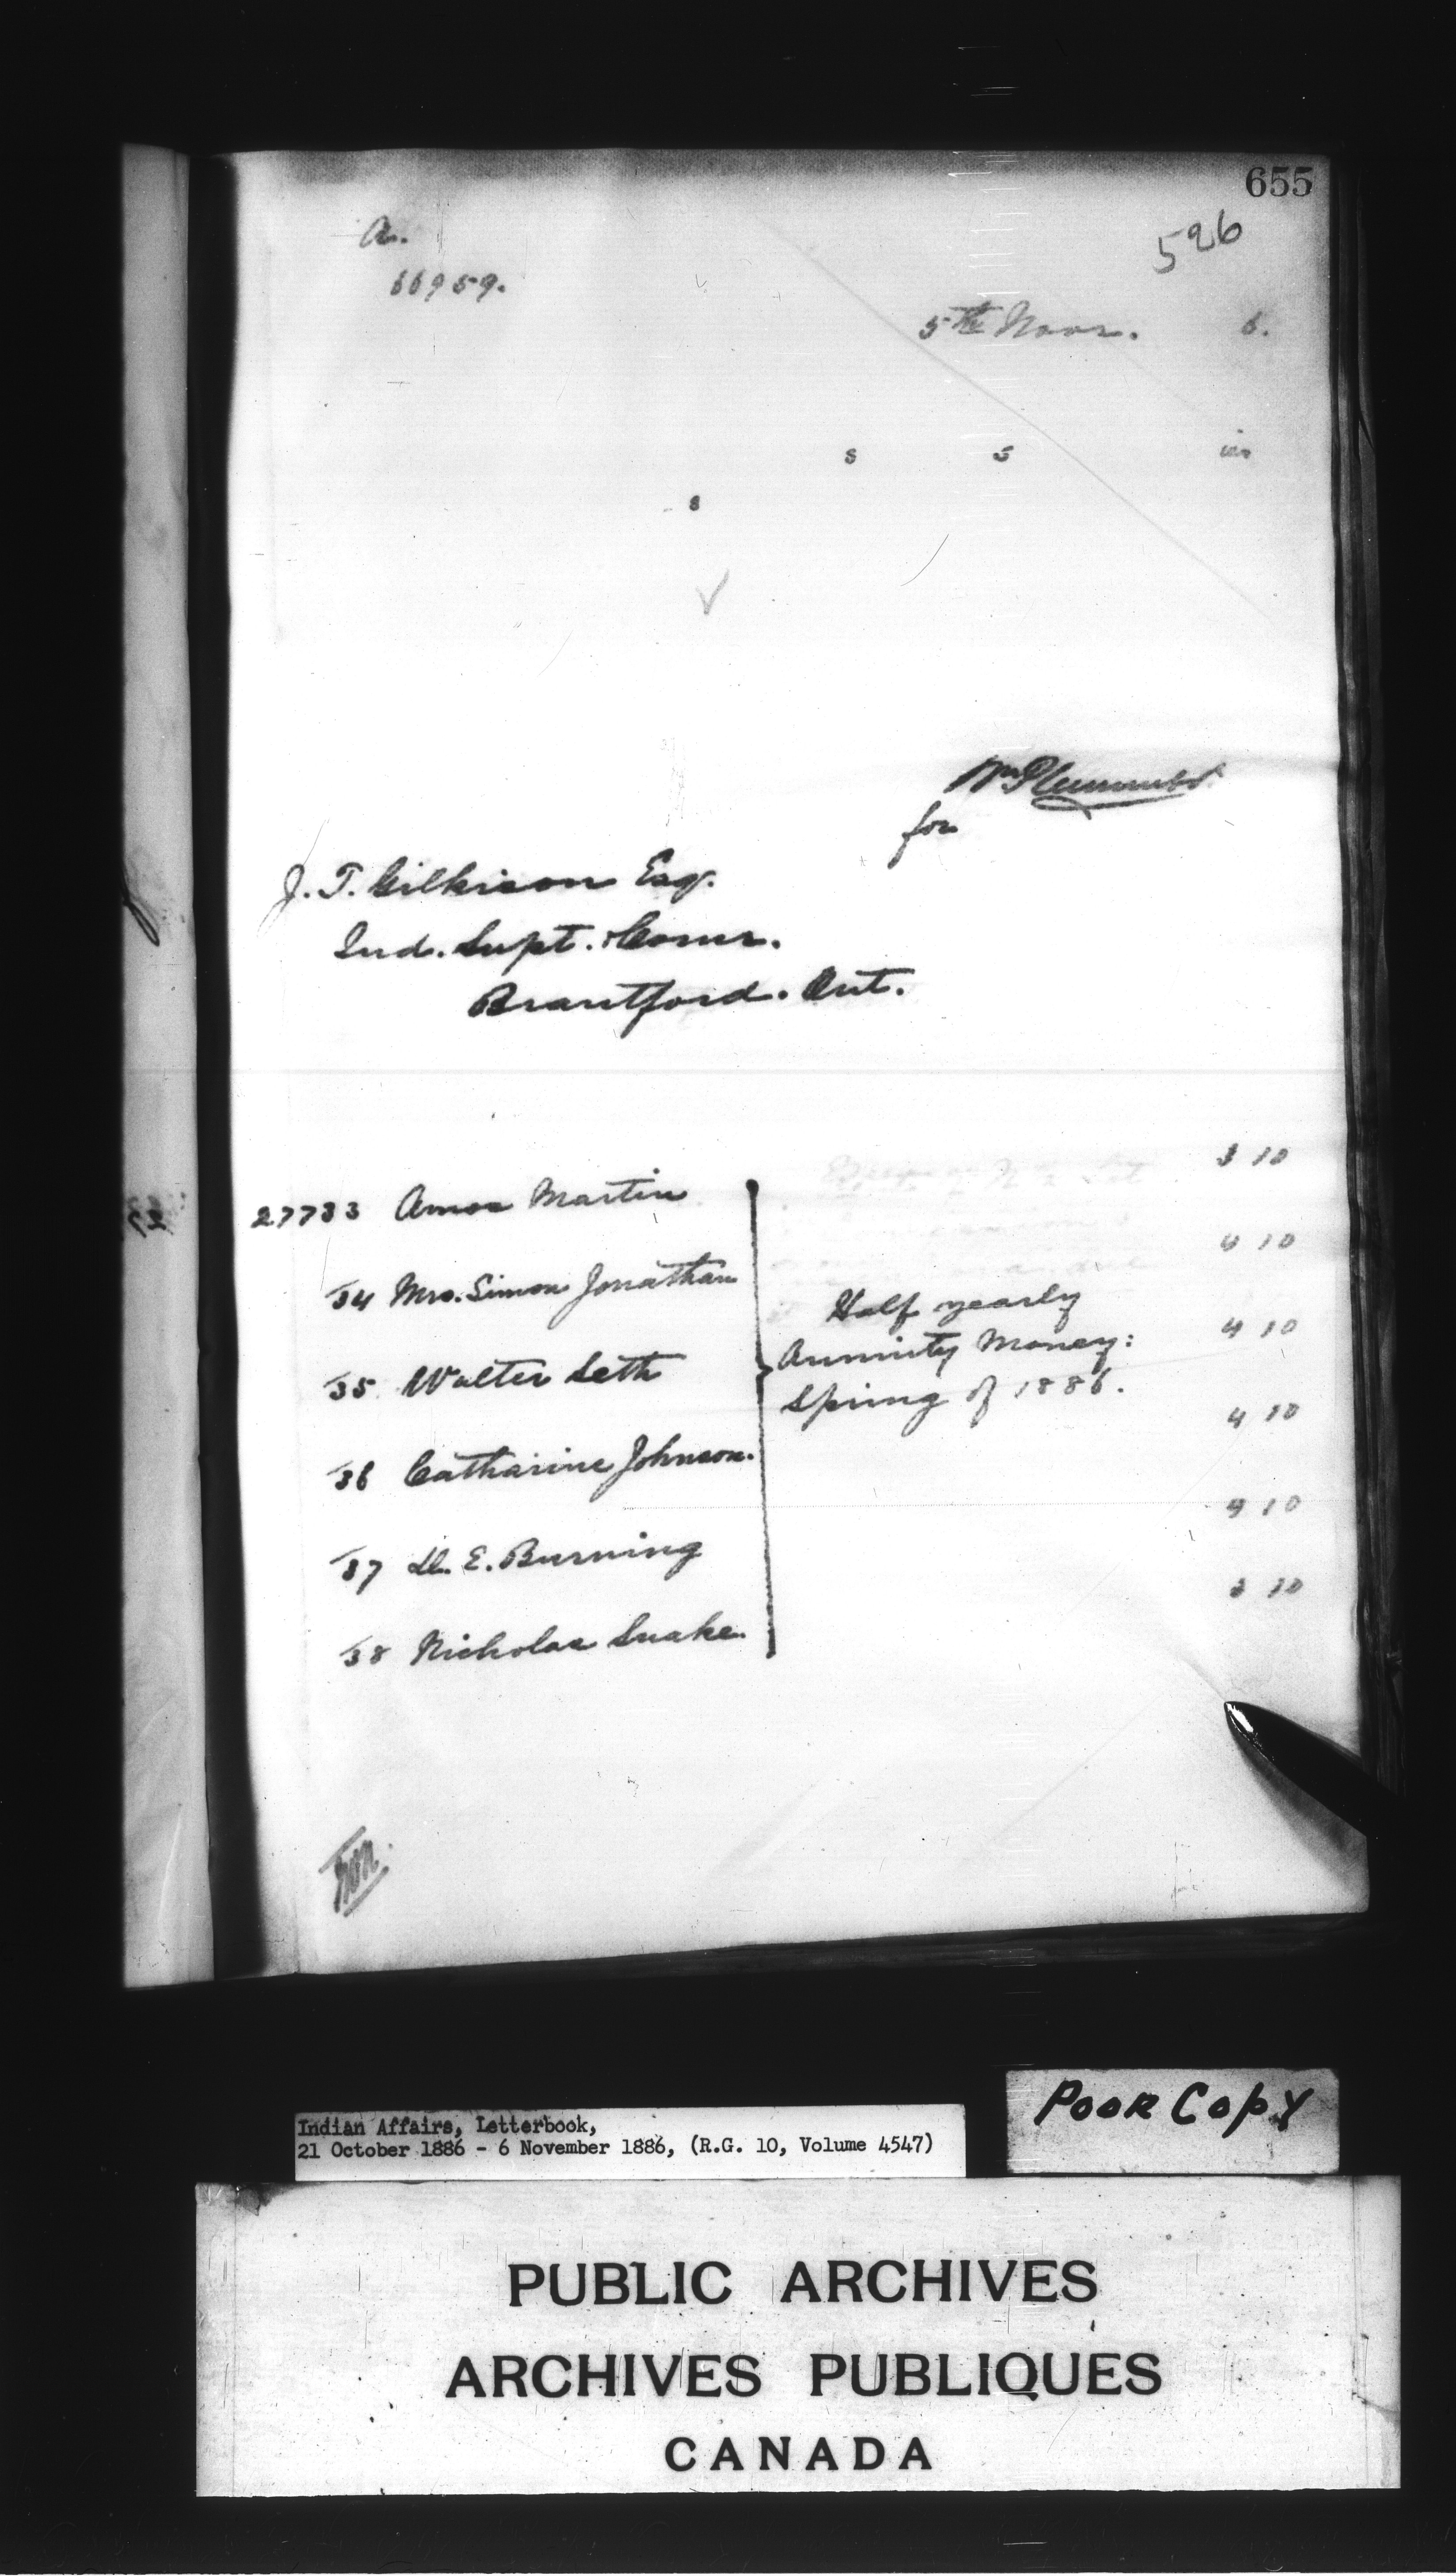 655
526
A.
66959.
5th Novr. 6.
s 5 ies
8
Wm Plummer
for
J. T. Gilkison Esq.
Ind. Supt. & Comr.
Brantford. Ont.
27733 Amos Martin 3 10
34 Mrs. Simon Jonathan 4 10
Half yearly
35 Walter Seth 4 10
Annuity Money:
Spring of 1886.
36 Catharine Johnson. 4 10
37 E. Burning 4 10
38 Nicholas Snake. 3 10
Indian Affairs, Letterbook,
21 October 1886 - 6 November 1886, (R.G. 10, Volume 4547)
POOR COPY
PUBLIC ARCHIVES
ARCHIVES PUBLIQUES
CANADA